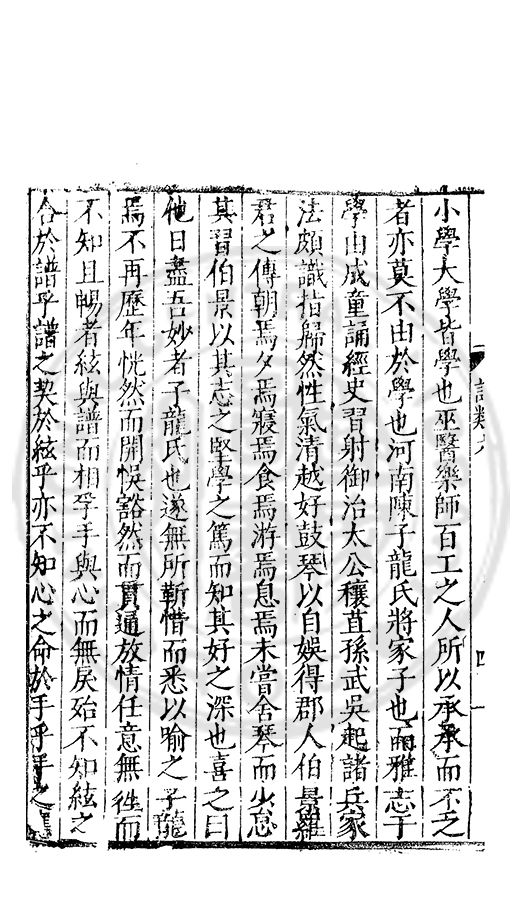 記類六
四
小學大學皆學也巫醫樂師百工之人所以承承而不乏
者亦莫不由於學也河南陳子龍氏將家子也而雅志于
學由成童誦經史習射御治太公穰苴孫武吳起諸兵家
法頗識指歸然性氣清越好鼓琴以自娛得郡人伯景羅
君之傳朝焉夕焉寢焉食焉游焉息焉未嘗舍琴而少怠
其習伯景以其志之堅學之篤而知其好之深也喜之曰
他日盡吾妙者子龍氏也遂無所靳惜而悉以喻之子龍
焉不再歷年恍然而開悞豁然而貫通放情任意無徃而
不知且暢者絃與譜而相孚手與心而無戾殆不知絃之
合於譜乎譜之契於絃乎亦不知心之命於手乎手之